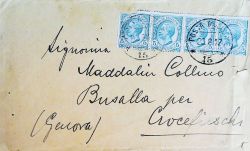 Signorina
Maddalin Collino
Busalla per
(Genova) Crocefieschi
15
15